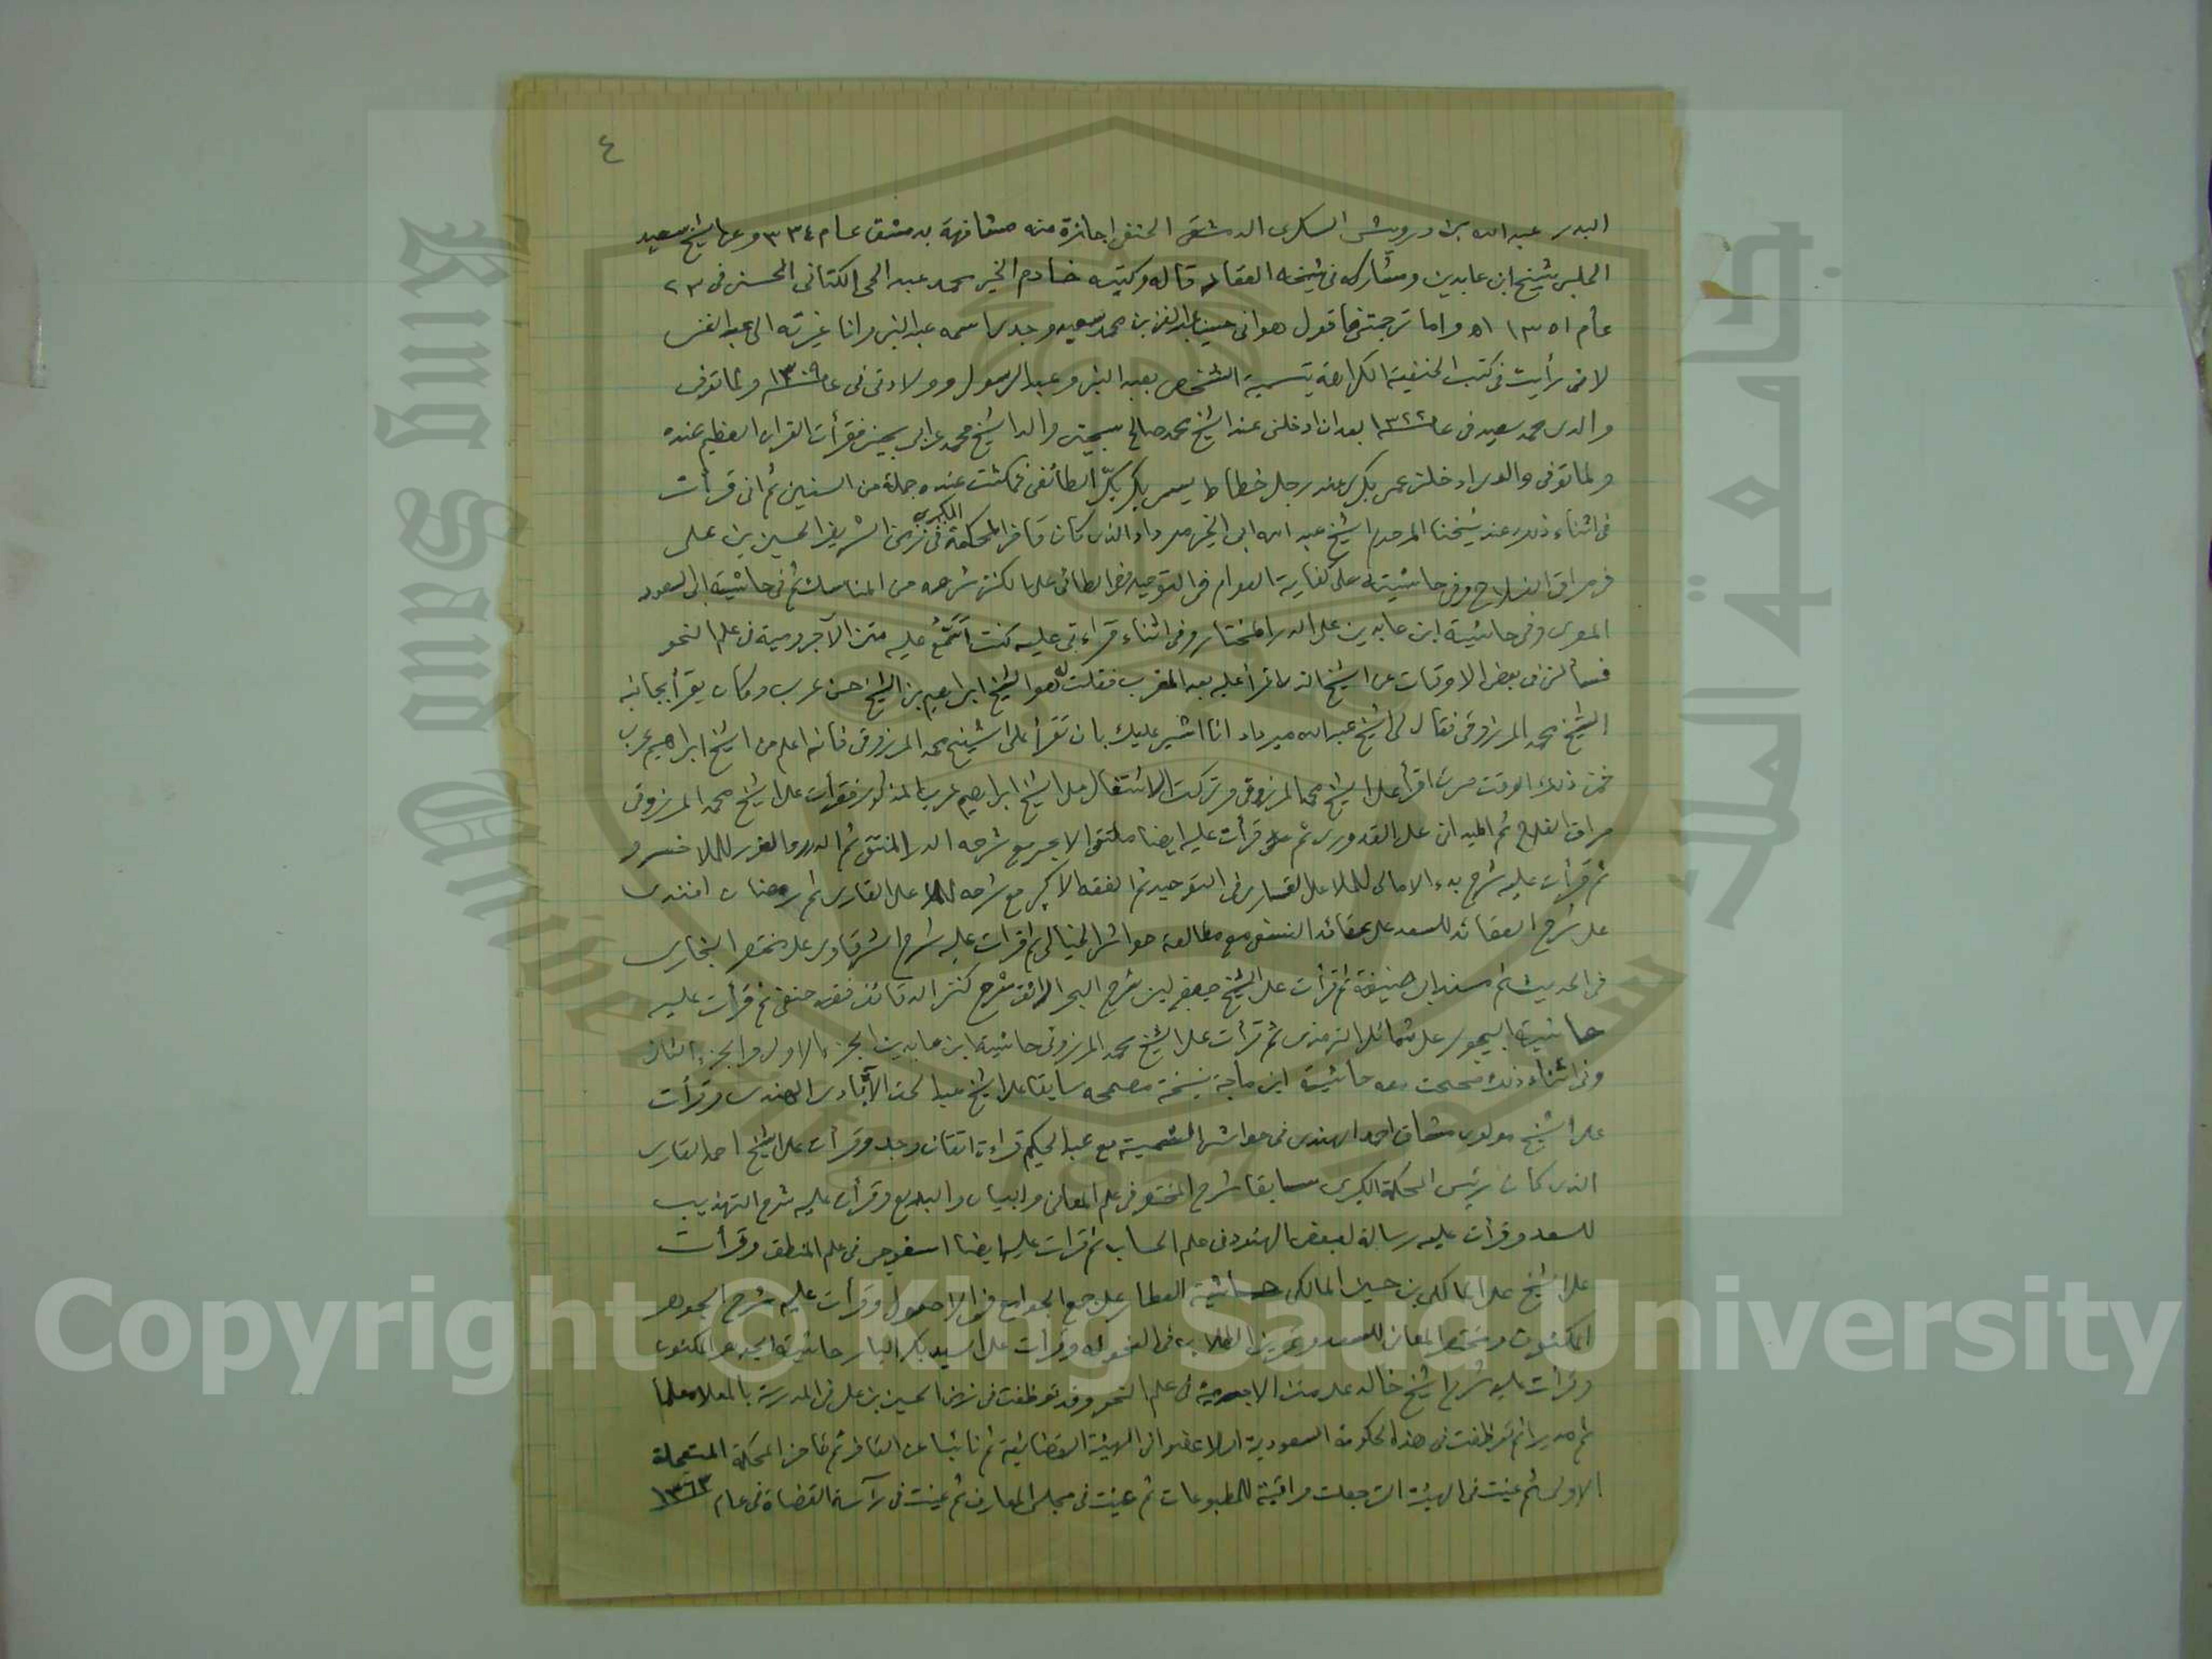 ٤
البدر عبد الله بن درويش السكري الدمشقي الحنفي اجازة منه مشافهة بدمشق عام ٣٣٤ وعن الشيخ سعيد
الحلبي شيخ ابن عابدين ومشاركه في شيخه العقاد قاله وكتبه خادم الخير محمد عبد الحي الكتاني الحسني في ٢٣
عام ١٣٥١ ه واما ترجمتي فاقول هو اني حسين عبد الغني بن محمد سعيد وجدي اسمه عبد النبي وانا غيرته الى عبد الغني
لاني رأيت في كتب الحنفية الكراهة بتسمية الشخص بعبد النبي وعبد الرسول وولادتي في عام ١٣٠٩ ولما توفي
والدي محمد سعيد في عام ١٣٢٢ بعد ان ادخلني عند الشيخ محمد صالح والد الشيخ محمد عرابي فقرأت القرآن العظيم عنده
ولما توفي والدي ادخلني عمي بكري عند رجل خطاط يسمى بكر الطائفي فمكثت عنده جملة من السنين ثم اني قرأت
في اثناء ذلك عند شيخنا المرحوم الشيخ عبد الله ابي الخير مرداد الذي كان قاضي المحكمة الكبرى في زمن الشريف الحسين بن علي
في مراقي الفلاح وفي حاشيته على كفاية العوام في التوحيد وفي الطائي على الكنز شرحه من المناسك ثم في حاشية ابي السعود
المصري وفي حاشية ابن عابدين على الدر المختار وفي اثناء قراءتي عليه كنت عليه متن الآجرومية في علم النحو
فسألني في بعض الاوقات عن الشيخ الذي اقرأ عليه بعد المغرب فقلت له هو الشيخ ابراهيم بن الشيخ حسن عرب وكان يقرأ بجانبه
الشيخ محمد المرزوقي فقال لي الشيخ عبد الله ميرداد انا اشير عليك بان تقرأ على الشيخ محمد المرزوقي فانه اعلم من الشيخ ابراهيم عرب
فمن ذلك الوقت صرت اقرأ على الشيخ محمد المرزوقي وتركت الاشتغال على الشيخ ابراهيم عرب المذكور فقرأت على الشيخ محمد المرزوقي
مراقي الفلاح ثم الميداني على القدوري ثم قرأت عليه ايضا ملتقى الابحر مع شرحه الدر المنتقى ثم الدرر والغرر للملا خسرو
ثم قرأت عليه شرح بدء الامالي للملا على القاري في التوحيد ثم الفقه الاكبر مع شرحه للملا على القاري ثم رمضان افندي
على شرح العقائد للسعد على عقائد النسفي مع مطالعة حواشي الخيالي ثم قرأت عليه شرح الشرقاوي على مختصر البخاري
في الحديث ثم مسند ابي حنيفة ثم قرأت على الشيخ جعفر لبني شرح البحر الرائق شرح كنز الدقائق فقه حنفي ثم قرأت عليه
حاشية البيجوري على شمائل الترمذي ثم قرأت على الشيخ محمد المرزوقي حاشية ابن عابدين الجزء الاول والجزء الثاني
وفي اثناء ذلك صححت معه حاشية ابن ماجة نسخة مصححه سابقا على الشيخ عبد الحق الآبادي الهندي وقرأت
على الشيخ مولوي مشتاق احمد الهندي في حواشي الشمسية مع عبد الحكيم قراءة اتقان وجد وقرأت على الشيخ احمد القاري
الذي كان رئيس المحكمة الكبرى سابقا شرح المختصر في علم المعاني والبيان والبديع وقرأت عليه شرح التهذيب
للسعد وقرأت عليه رسالة لبعض الهنود في علم الحساب ثم قرأت عليه ايضا ايسغوجي في علم المنطق وقرأت
على الشيخ على المالكي بن حسين المالكي حاشية العطار على جمع الجوامع في الاصول وقرأت عليه شرح الجوهر
المكنون ومختصر المعاني للسعد وقرأت على السيد بكر البار حاشية الجوهر المكنون
وقرأت عليه شرح الشيخ خالد على متن الاجرومية في علم النحو وقد توظفت في زمن الحسين بن علي في المدرسة بالمعلا معلما
ثم مديرا ثم توظفت في هذه الحكومة السعودية اولا عضوا في الهيئة القضائية ثم نائبا عن القاضي ثم قاضي المحكمة المستعجلة
الاولى ثم عينت في الهيئة التي جعلت مراقبة للمطبوعات ثم عينت في مجلس المعارف ثم عينت في رآسة القضاة في عام ١٣٦٣
Copyright © King Saud University
King Saud University
جامعة الملك سعود
1957